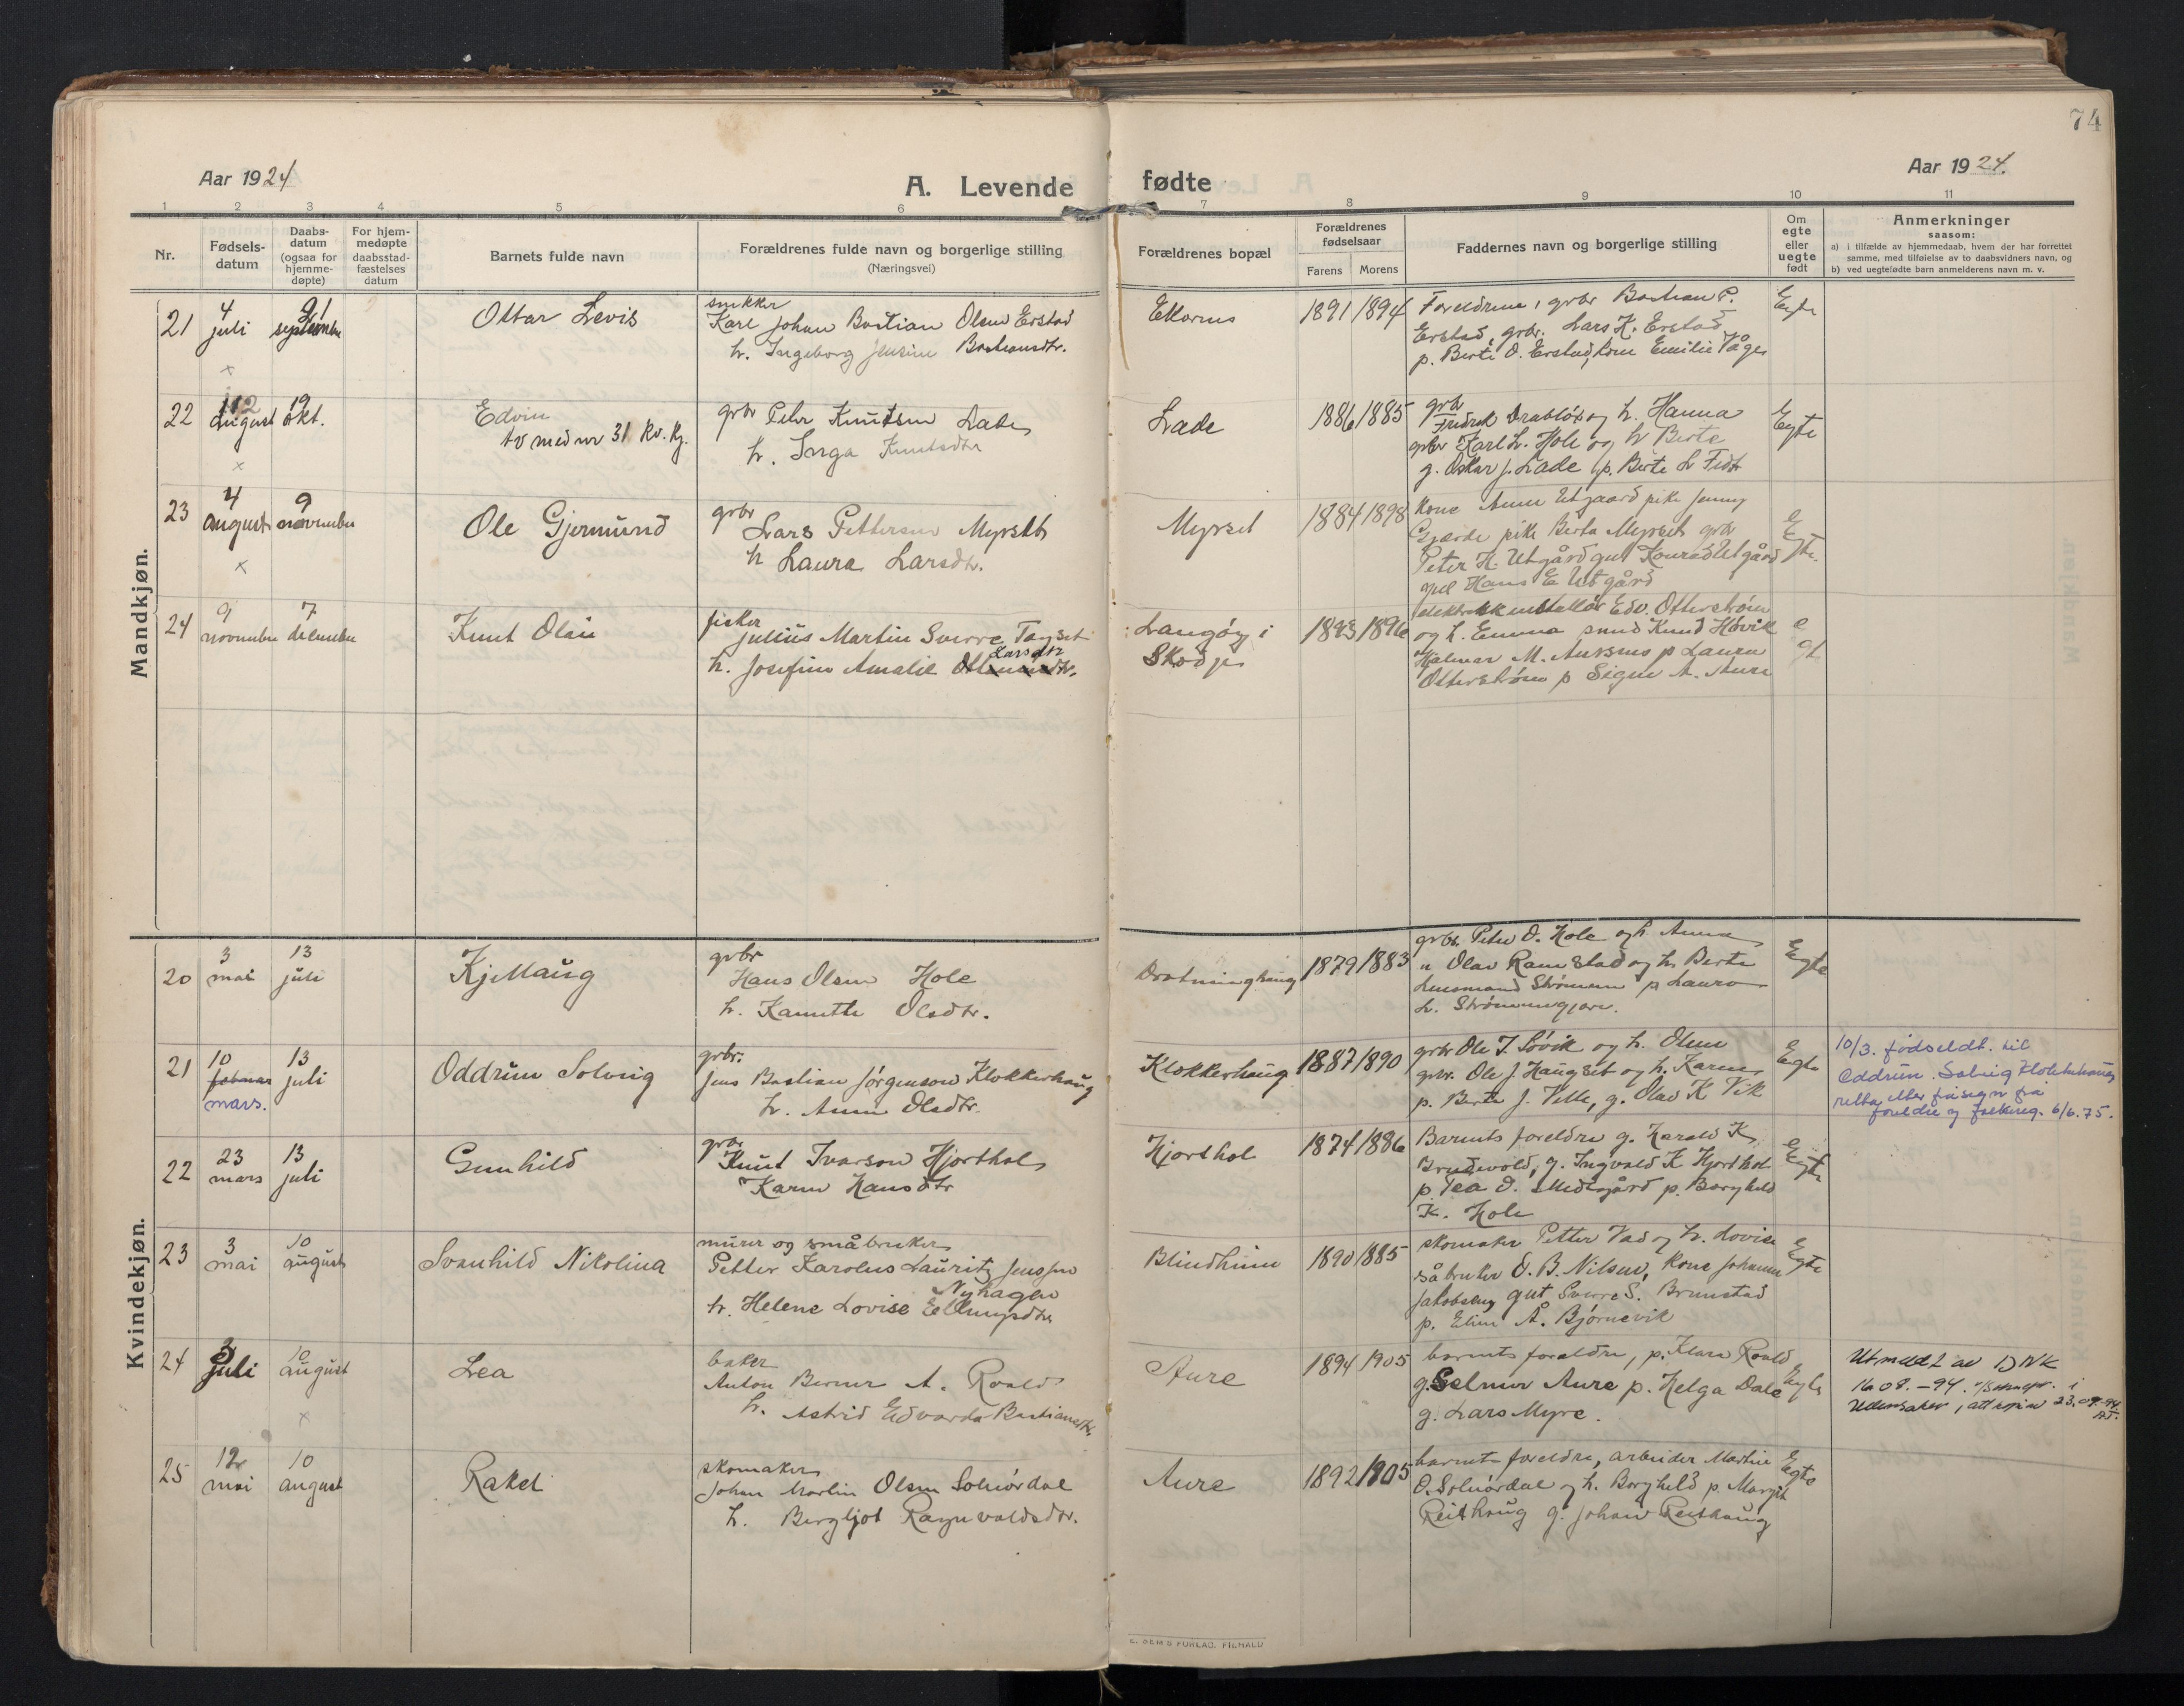 74
Aar 1924
A. Levende fødte
Aar 1924.
1 2 3 4 5 6 7 8 9 10 11
Nr.
Fødsels-
datum
Daabs-
datum
(ogsaa for
hjemme-
døpte)
For hjem-
medøpte
daabsstad-
fæstelses
datum
Barnets fulde navn
Forældrenes fulde navn og borgerlige stilling
(Næringsvei)
Forældrenes bopæl
Forældrenes
fødselsaar
Farens Morens
Faddernes navn og borgerlige stilling
Om
egte
eller
uegte
født
Anmerkninger
saasom:
a) i tilfælde av hjemmedaab, hvem der har forrettet
samme, med tilføielse av to daabsvidners navn, og
b) ved uegtefødte barn anmelderens navn m. v.
Mandkjøn.
21 4 juli 21 september
Ottar Levis
snikker
Karl Johan Bastian Olsen Erstad
h. Ingeborg Jensine Bastiansdtr.
Ekornes
1891/1894
Foreldrene, grbr Bastian P.
Erstad, grbr. Lars K. Erstad
p. Berte O. Erstad, kone Emilie Våge
Egte
x
22 12 august 19 okt.
Edvin
tv med nr 31 kv. kj.
grbr Peter Knutsen Lade
h. Inga Knutsdtr
Lade
1886/1885
grbr
Fredrik Drabløs og h. Hanna
grbr Karl L. Hole og h Berte
g. Oskar J. Lade p. Berte L
Egte
x
23 4 august 9 november
Ole Gjermund
grbr
Lars Pettersen Myrset
h Laura Larsdtr.
Myrset
1884/1898
kone Anne Utgaard pike Jenny
Gjærde pike Berta Myrset grbr
Peter H. Utgård gut Konrad Utgård
Hans E Utgård
Egte.
x
24 9 november 7 desember
Knut Olav
fisker
Julius Martin Sverre Tanset
Larsdtr
h. Josefine Amalie
Langøy i
Skodje
1893/1896
Edv. Otterstrøm
og h. Emma smed Knud Høvik
Hjalmar M. Aursnes p Laura
Otterstrøm p Signe A. Aure
egt
Kvindekjøn.
20 3 mai 13 juli
Kjellaug
grbr
Hans Olsen Hole
h. Kanutte Olsdtr.
Drotninghaug
1879/1883
grbr. Peter O. Hole og h. Anna
Olav Ramstad og h. Berte
Lensmand Strømmen p Laura
L. Strømmengjære.
Egte
21 10 februar mars. 13 juli
Oddrun Solveig
grbr.
Jens Bastian Jørgensen Klokkerhaug
h. Anne Olsdtr.
Klokkerhaug
1887/1890
grbr Ole J. Søvik og h. Oline
grbr. Ole J. Haugset og h. Karen
p. Berte J. Velle, g. Olav K Vik
Egte
10/3. fødseldt. til
Oddrun Solveig Klokkerhaug
rettet etter
foreldre og folkereg. 6/6.75.
22 23 mars 13 juli
Gunhild
grbr
Knut Ivarson Hjorthol
Karen Hansdtr
Hjorthol
1874/1886
Barnets foreldre g. Harald K.
Brudevold, g. Ingvald K Hjorthol
p. Tea O. Midtgård p. Borghild
K. Hole
Egte
23 3 mai 10 august
Svanhild Nikolina
murer og småbruker
Petter Karolus Lauritz Jensen
Nyhagen
h. Helene Lovise Ellingsdtr
Blindheim
1890/1885
skomaker Petter Vad og h. Lovise
småbruker O. B. Nilsen, kone Johanne
Jakobsen, gut Sverre S. Brunstad
p. Eline Å. Bjørnevik
Egte
24 3 juli 10 august
Lea
baker
Anton Berner A. Roald
h. Astrid Edvarda Bastiansdtr.
Aure
1894/1905
barnets foreldre, p. Klara Roald
g. Selmer Aure p. Helga Dale
g. Lars Myre.
Egte
Utmeldt av DNK
16.08.-94.
x
25 12 mai 10 august
Rakel
skomaker
Johan Martin Olsen Solnørdal
h. Bergljot Ragnvaldsdtr.
Aure
1892/1905
barnets foreldre, arbeider Martin
O. Solnørdal og h. Borghild p. Margit
Reithaug g. Johan Reithaug
Egte
E. SEM'S FORLAG, FR.HALD